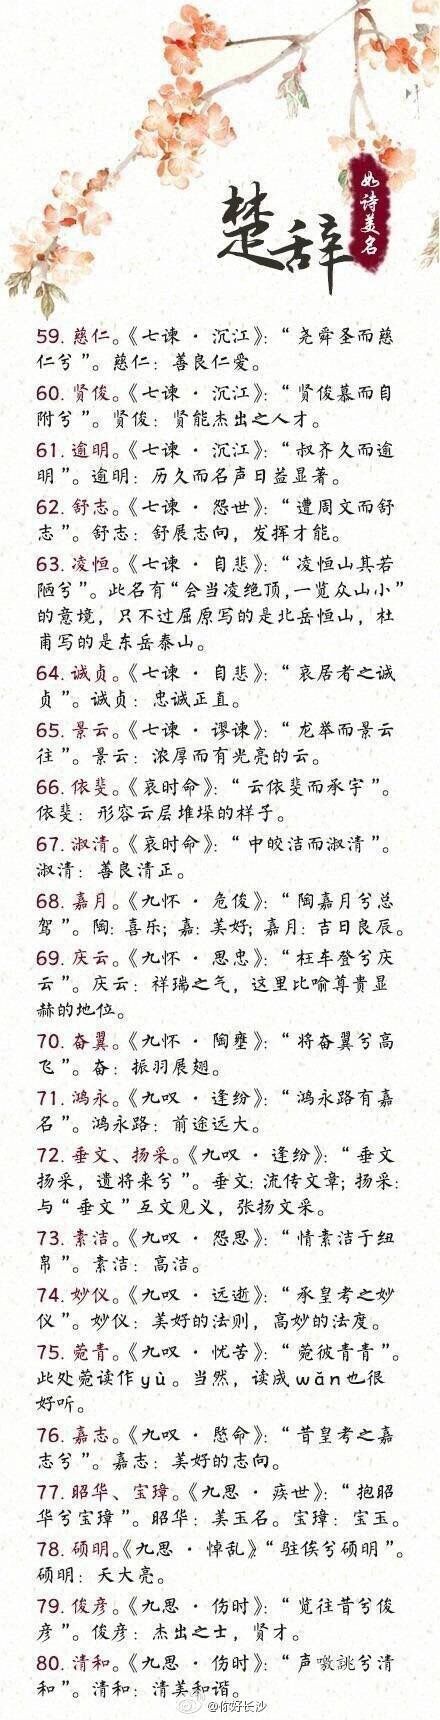 楚辞
如诗美名
59. 慈仁。《七谏 · 沉江》：“ 尧舜圣而慈
仁兮 ”。慈仁：善良仁爱。
60. 贤俊。《七谏 · 沉江》：“ 贤俊慕而自
附兮 ”。贤俊：贤能杰出之人才。
61. 逾明。《七谏 · 沉江》：“叔齐久而逾
明”。逾明：历久而名声日益显著。
62. 舒志。《七谏 · 怨世》：“遭周文而舒
志”。舒志：舒展志向，发挥才能。
63. 凌恒。《七谏 · 自悲》：“凌恒山其若
陋兮”。此名有“会当凌绝顶，一览众山小”
的意境，只不过屈原写的是北岳恒山，杜
甫写的是东岳泰山。
64. 诚贞。《七谏 · 自悲》：“哀居者之诚
贞”。诚贞：忠诚正直。
65. 景云。《七谏 · 谬谏》：“龙举而景云
往”。景云：浓厚而有光亮的云。
66. 依斐。《哀时命》：“云依斐而承宇”。
依斐：形容云层堆垛的样子。
67. 淑清。《哀时命》：“中皎洁而淑清”。
淑清：善良清正。
68. 嘉月。《九怀 · 危俊》：“陶嘉月兮总
驾”。陶：喜乐；嘉：美好；嘉月：吉日良辰。
69. 庆云。《九怀 · 思忠》：“枉车登兮庆
云”。庆云：祥瑞之气，这里比喻尊贵显
赫的地位。
70. 奋翼。《九怀 · 陶壅》：“将奋翼兮高
飞”。奋：振羽展翅。
71. 鸿永。《九叹 · 逢纷》：“鸿永路有嘉
名”。鸿永路：前途远大。
72. 垂文、扬采。《九叹 · 逢纷》：“垂文
扬采，遗将来兮”。垂文：流传文章；扬采：
与“垂文”互文见义，张扬文采。
73. 素洁。《九叹 · 怨思》：“情素洁于纽
帛”。素洁：高洁。
74. 妙仪。《九叹 · 远逝》：“承皇考之妙
仪”。妙仪：美好的法则，高妙的法度。
75. 菀青。《九叹 · 忧苦》：“菀彼青青”。
此处菀读作yù。当然，读成wǎn也很
好听。
76. 嘉志。《九叹 · 愍命》：“昔皇考之嘉
志兮”。嘉志：美好的志向。
77. 昭华、宝璋。《九思 · 疾世》：“抱昭
华兮宝璋”。昭华：美玉名。宝璋：宝玉。
78. 硕明。《九思 · 悼乱》：“驻俟兮硕明”。
硕明：天大亮。
79. 俊彦。《九思 · 伤时》：“览往昔兮俊
彦”。俊彦：杰出之士，贤才。
80. 清和。《九思 · 伤时》：“声噭誂兮清
和”。清和：清美和谐。
@你好长沙